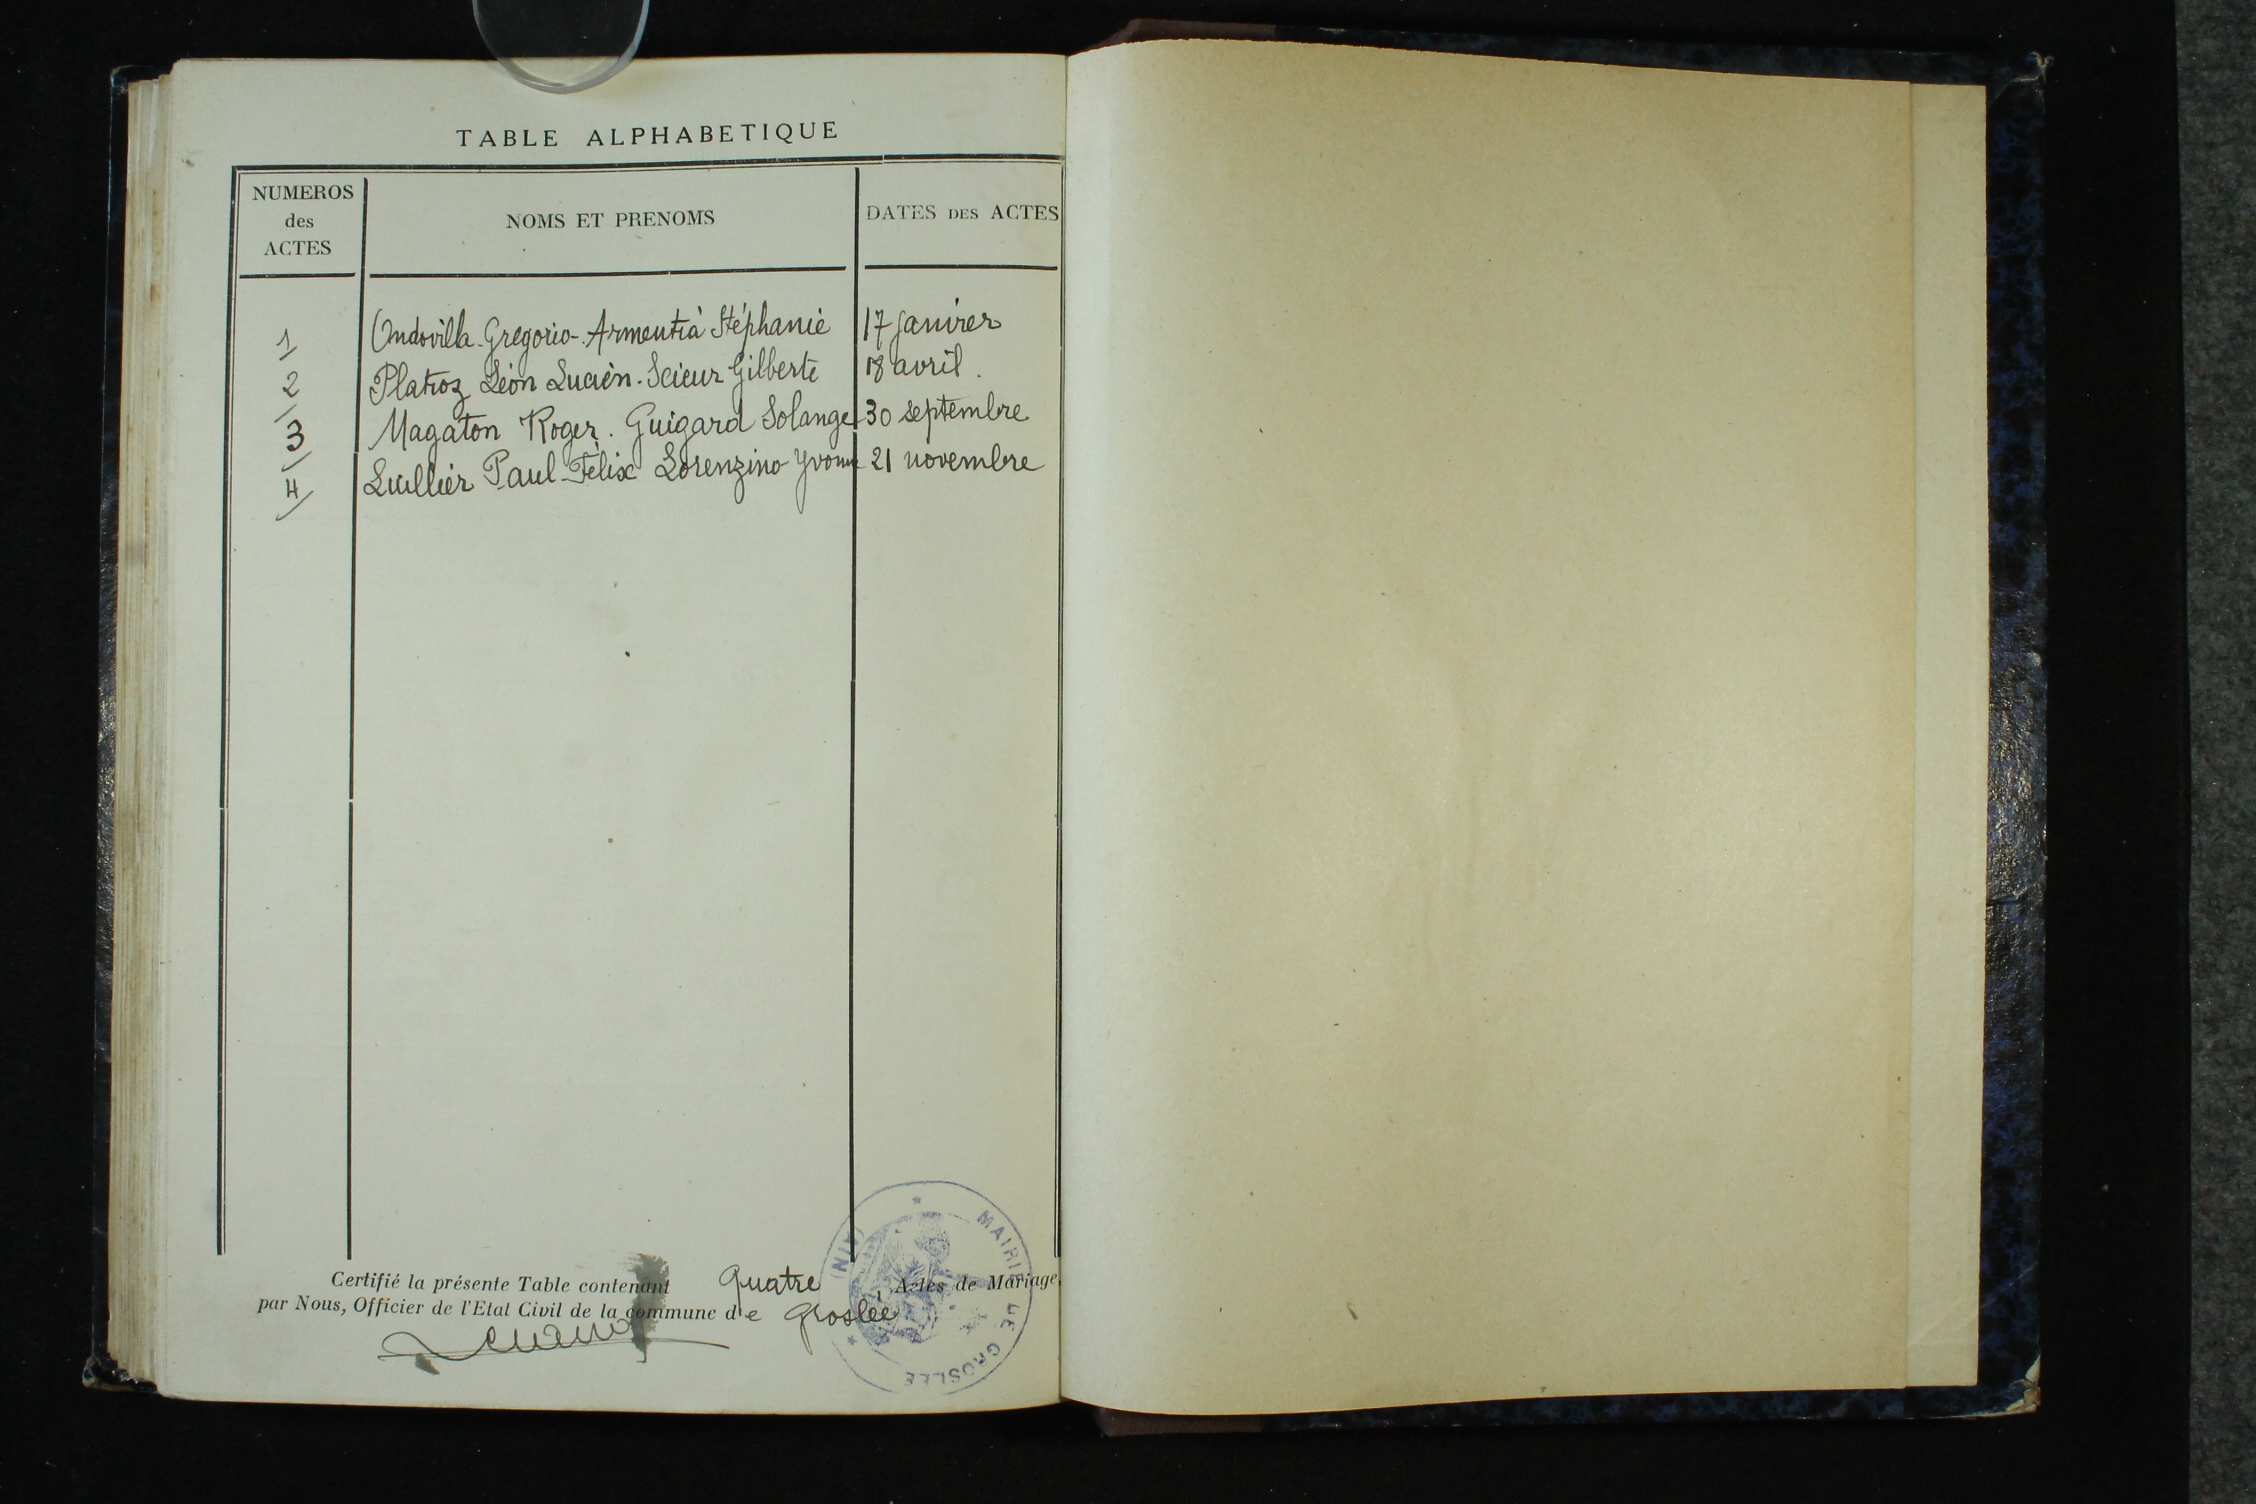 TABLE ALPHABETIQUE
NUMEROS des ACTES
NOMS ET PRENOMS
DATES DES ACTES
1 Ondovilla-Gregorio-Armentia Stéphanie 17 janvier
2 Platroz Léon Lucien. Scieur Gilberte 18 avril.
3 Magaton Roger. Guigard Solange 30 septembre
4 Luillier Paul-Félix Lorenzino Yvonne 21 novembre
Certifié la présente Table contenant Quatre Actes de Mariage
par Nous, Officier de l'Etat Civil de la commune de Groslée
MAIRIE DE GROSLEE (AIN)